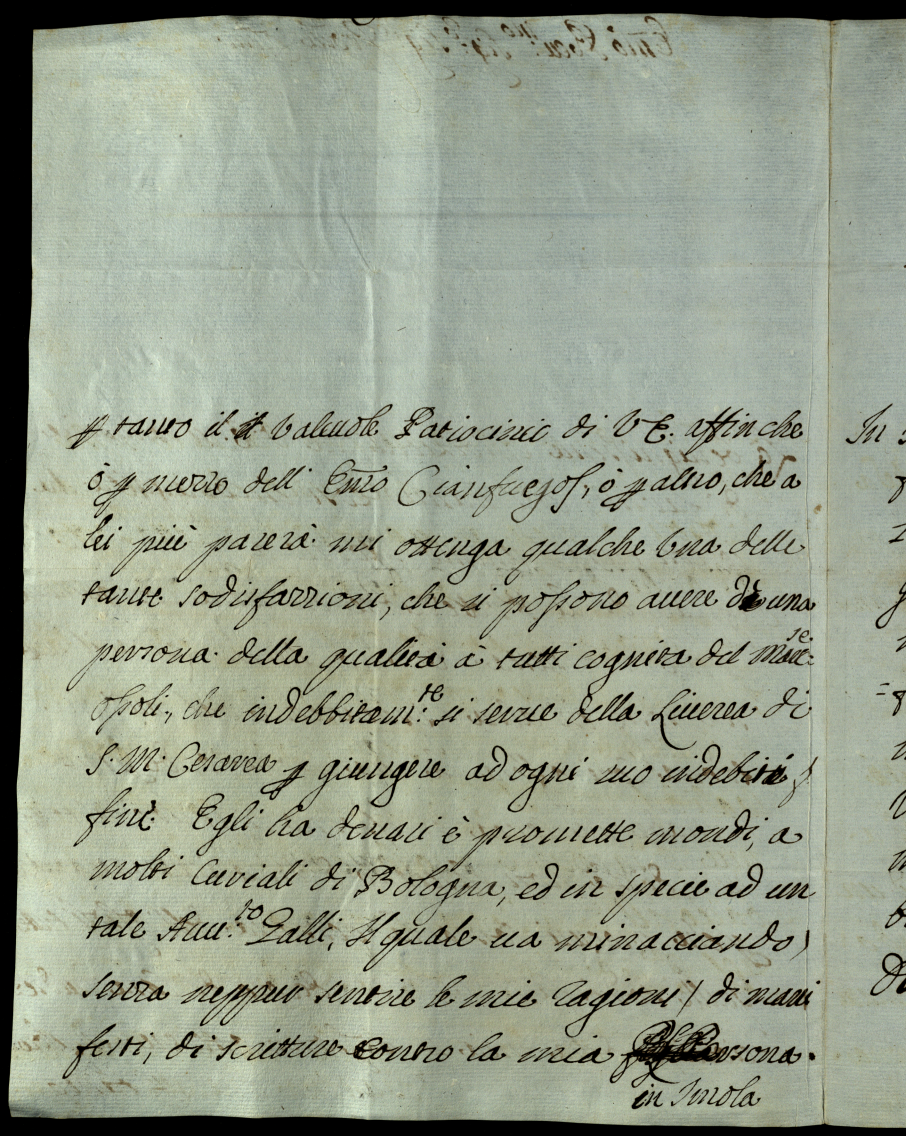 p tanto il valevole Patrocinio di V E. affinche
ò p mezzo dell' Emo Cianfuegos, ò p altro, che a
lei più parerà mi ottenga qualche Una delle
tante sodisfazzioni, che si possono avere di una
persona della qualità à tutti cognita del
ossoli, che indebbitam:te si serve della Liverea di
S. M. Cesarea p giungere ad ogni suo indebito
fine. Egli ha denari è promette mondi, a
molti Curiali di Bologna, ed in specie ad un
tale Avv:to Galli, Il quale va minacciando)
senza neppur sentire le mie ragioni) di mani
festi, di scritture contro la mia Persona.
in Imola
In